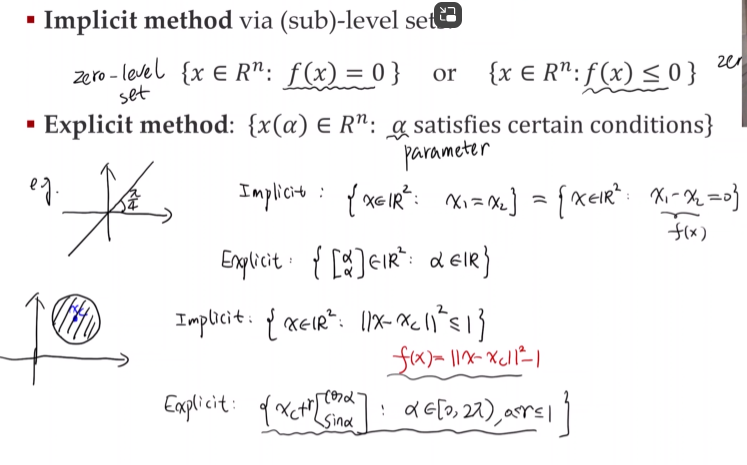 ▪ Implicit method via (sub)-level set
zero-level set {x ∈ Rⁿ: f(x) = 0 } or {x ∈ Rⁿ: f(x) ≤ 0 }
▪ Explicit method: {x(α) ∈ Rⁿ: α satisfies certain conditions}
parameter
e.g. π/4 Implicit : { x∈ℝ²: x₁=x₂ } = { x∈ℝ²: x₁-x₂=0 }
f(x)
Explicit: { [α α]∈ℝ²: α∈ℝ }
Implicit: { x∈ℝ²: ||x-x_c||² ≤ 1 }
f(x)= ||x-x_c||²-1
Explicit: { x_c+r[cosα sinα] : α∈[0, 2π), 0≤r≤1 }